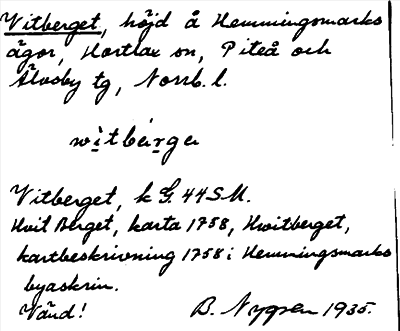 Vitberget, höjd å Hemmingsmarks
ägor, Hortlax sn, Piteå och
Älvsby tg, Norrb. l.
wìtbärge
Vitberget, k G. 44 S.U.
Hvit Berget, karta 1758, Hwitberget,
kartbeskrivning 1758 i Hemmingsmarks
byaskrin.
Vänd! B. Nygren 1935.